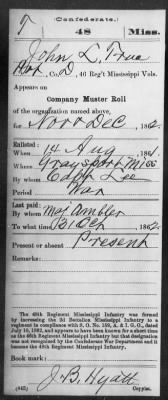 T
(Confederate.)
48 Miss.
John L. True
Pvt, Co. D, 48 Reg't Mississippi Vols.
Appears on
Company Muster Roll
of the organization named above,
for Nov & Dec, 1862.
Enlisted:
When 14 Aug, 1861.
Where Graysport Miss
By whom Capt Lee
Period War
Last paid:
By whom Maj Ambler
To what time 31 Oct, 1862.
Present or absent Present
Remarks:
The 48th Regiment Mississippi Infantry was formed
by increasing the 2d Battalion Mississippi Infantry to a
regiment in compliance with S. O. No. 159, A. & I. G. O., dated
July 10, 1862, and appears to have been known for a short time
as the 45th Regiment Mississippi Infantry but that designation
was not recognized by the Confederate War Department and it
became the 48th Regiment Mississippi Infantry.
Book mark:
J. B. Hyatt
(642) Copyist.